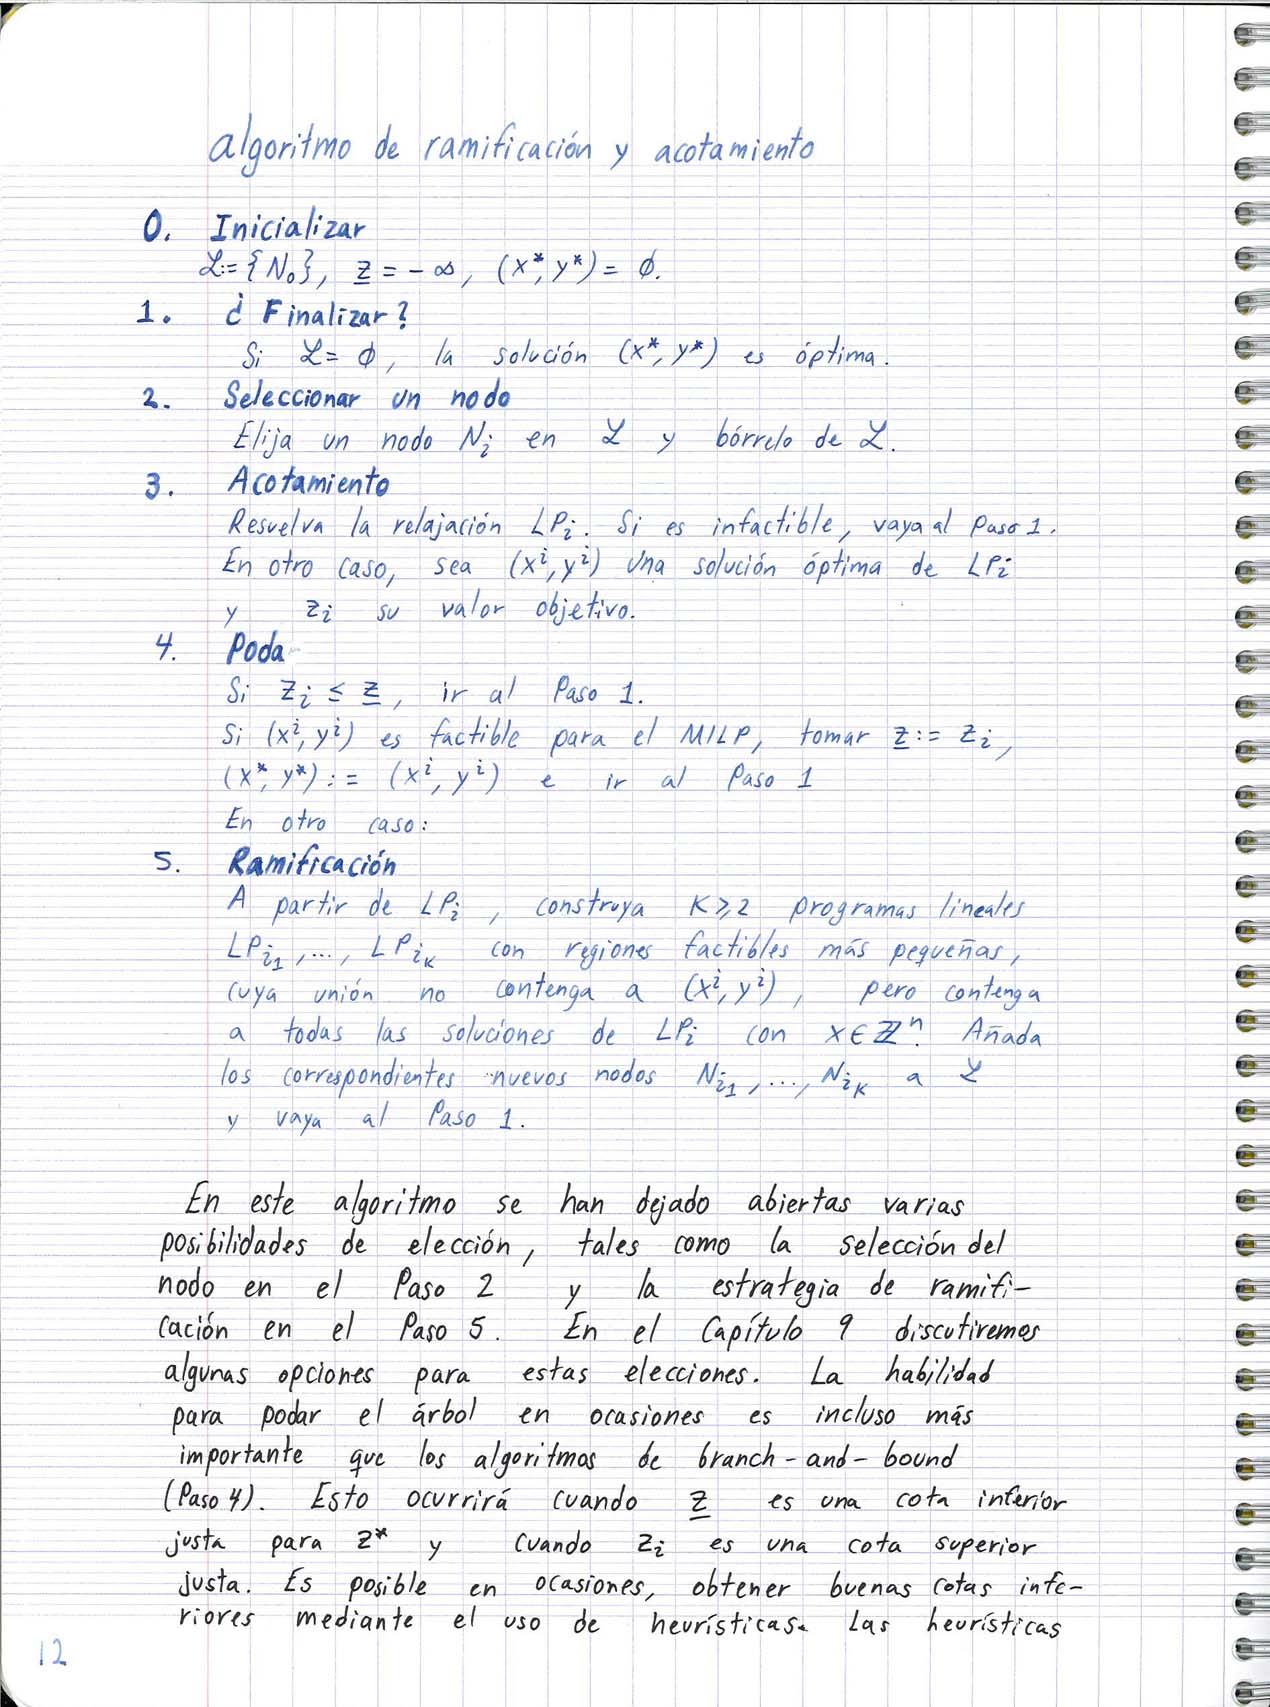 algoritmo de ramificación y acotamiento
0. Inicializar
ℒ:= {N₀}, z̲ = -∞, (x*, y*) = ∅.
1. ¿Finalizar?
Si ℒ = ∅, la solución (x*, y*) es óptima.
2. Seleccionar un nodo
Elija un nodo Nᵢ en ℒ y bórrelo de ℒ.
3. Acotamiento
Resuelva la relajación LPᵢ. Si es infactible, vaya al Paso 1.
En otro caso, sea (xⁱ, yⁱ) una solución óptima de LPᵢ
y zᵢ su valor objetivo.
4. Poda
Si zᵢ ≤ z̲, ir al Paso 1.
Si (xⁱ, yⁱ) es factible para el MILP, tomar z̲ := zᵢ,
(x*, y*) := (xⁱ, yⁱ) e ir al Paso 1
En otro caso:
5. Ramificación
A partir de LPᵢ, construya K ≥ 2 programas lineales
LPᵢ₁, ..., LPᵢₖ con regiones factibles más pequeñas,
cuya unión no contenga a (xⁱ, yⁱ), pero contenga
a todas las soluciones de LPᵢ con x ∈ ℤⁿ. Añada
los correspondientes nuevos nodos Nᵢ₁, ..., Nᵢₖ a ℒ
y vaya al Paso 1.
En este algoritmo se han dejado abiertas varias
posibilidades de elección, tales como la selección del
nodo en el Paso 2 y la estrategia de ramifi-
cación en el Paso 5. En el Capítulo 9 discutiremos
algunas opciones para estas elecciones. La habilidad
para podar el árbol en ocasiones es incluso más
importante que los algoritmos de branch-and-bound
(Paso 4). Esto ocurrirá cuando z̲ es una cota inferior
justa para z* y cuando zᵢ es una cota superior
justa. Es posible en ocasiones, obtener buenas cotas infe-
riores mediante el uso de heurísticas. Las heurísticas
12